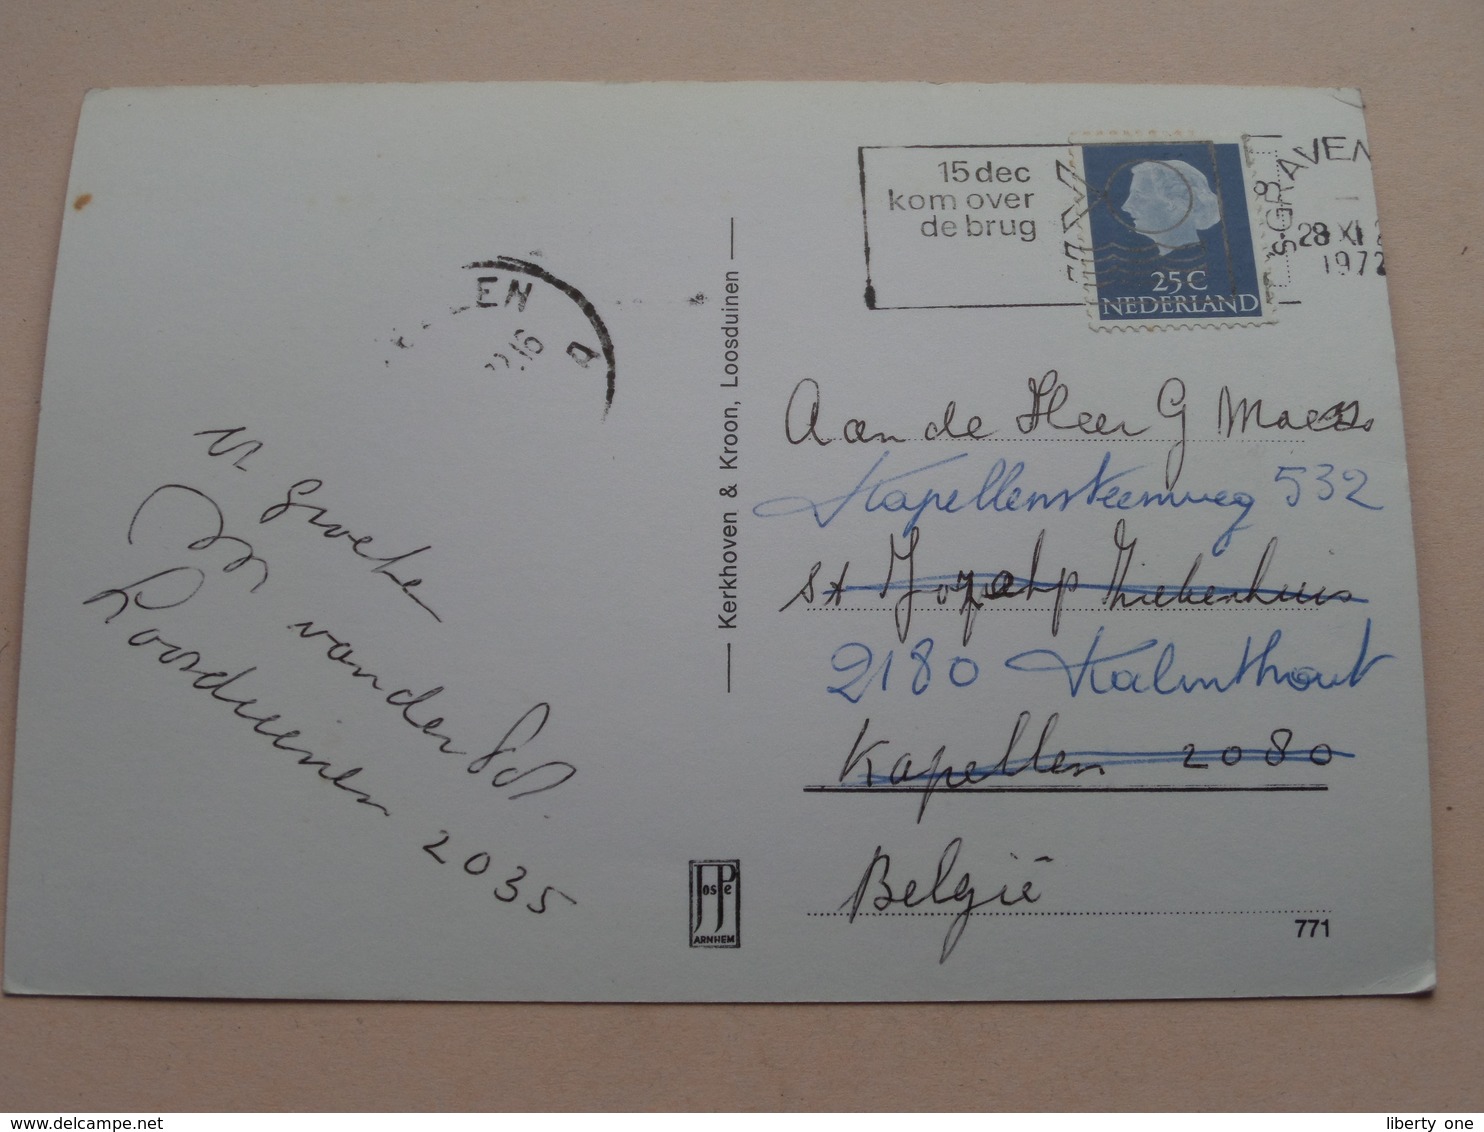 15 dec
kom over
de brug
25C
NEDERLAND
'S-GRAVEN
28 XI
1972
EN
16
Kerkhoven & Kroon, Loosduinen
Groeten
van der
Loosduinen 2035
Aan de Heer G Maes
Kapellensteenweg 532
St Jozeph Ziekenhuis
2180 Kalmthout
Kapellen 2080
België
JosPe
ARNHEM
771
delcampe.net
liberty one